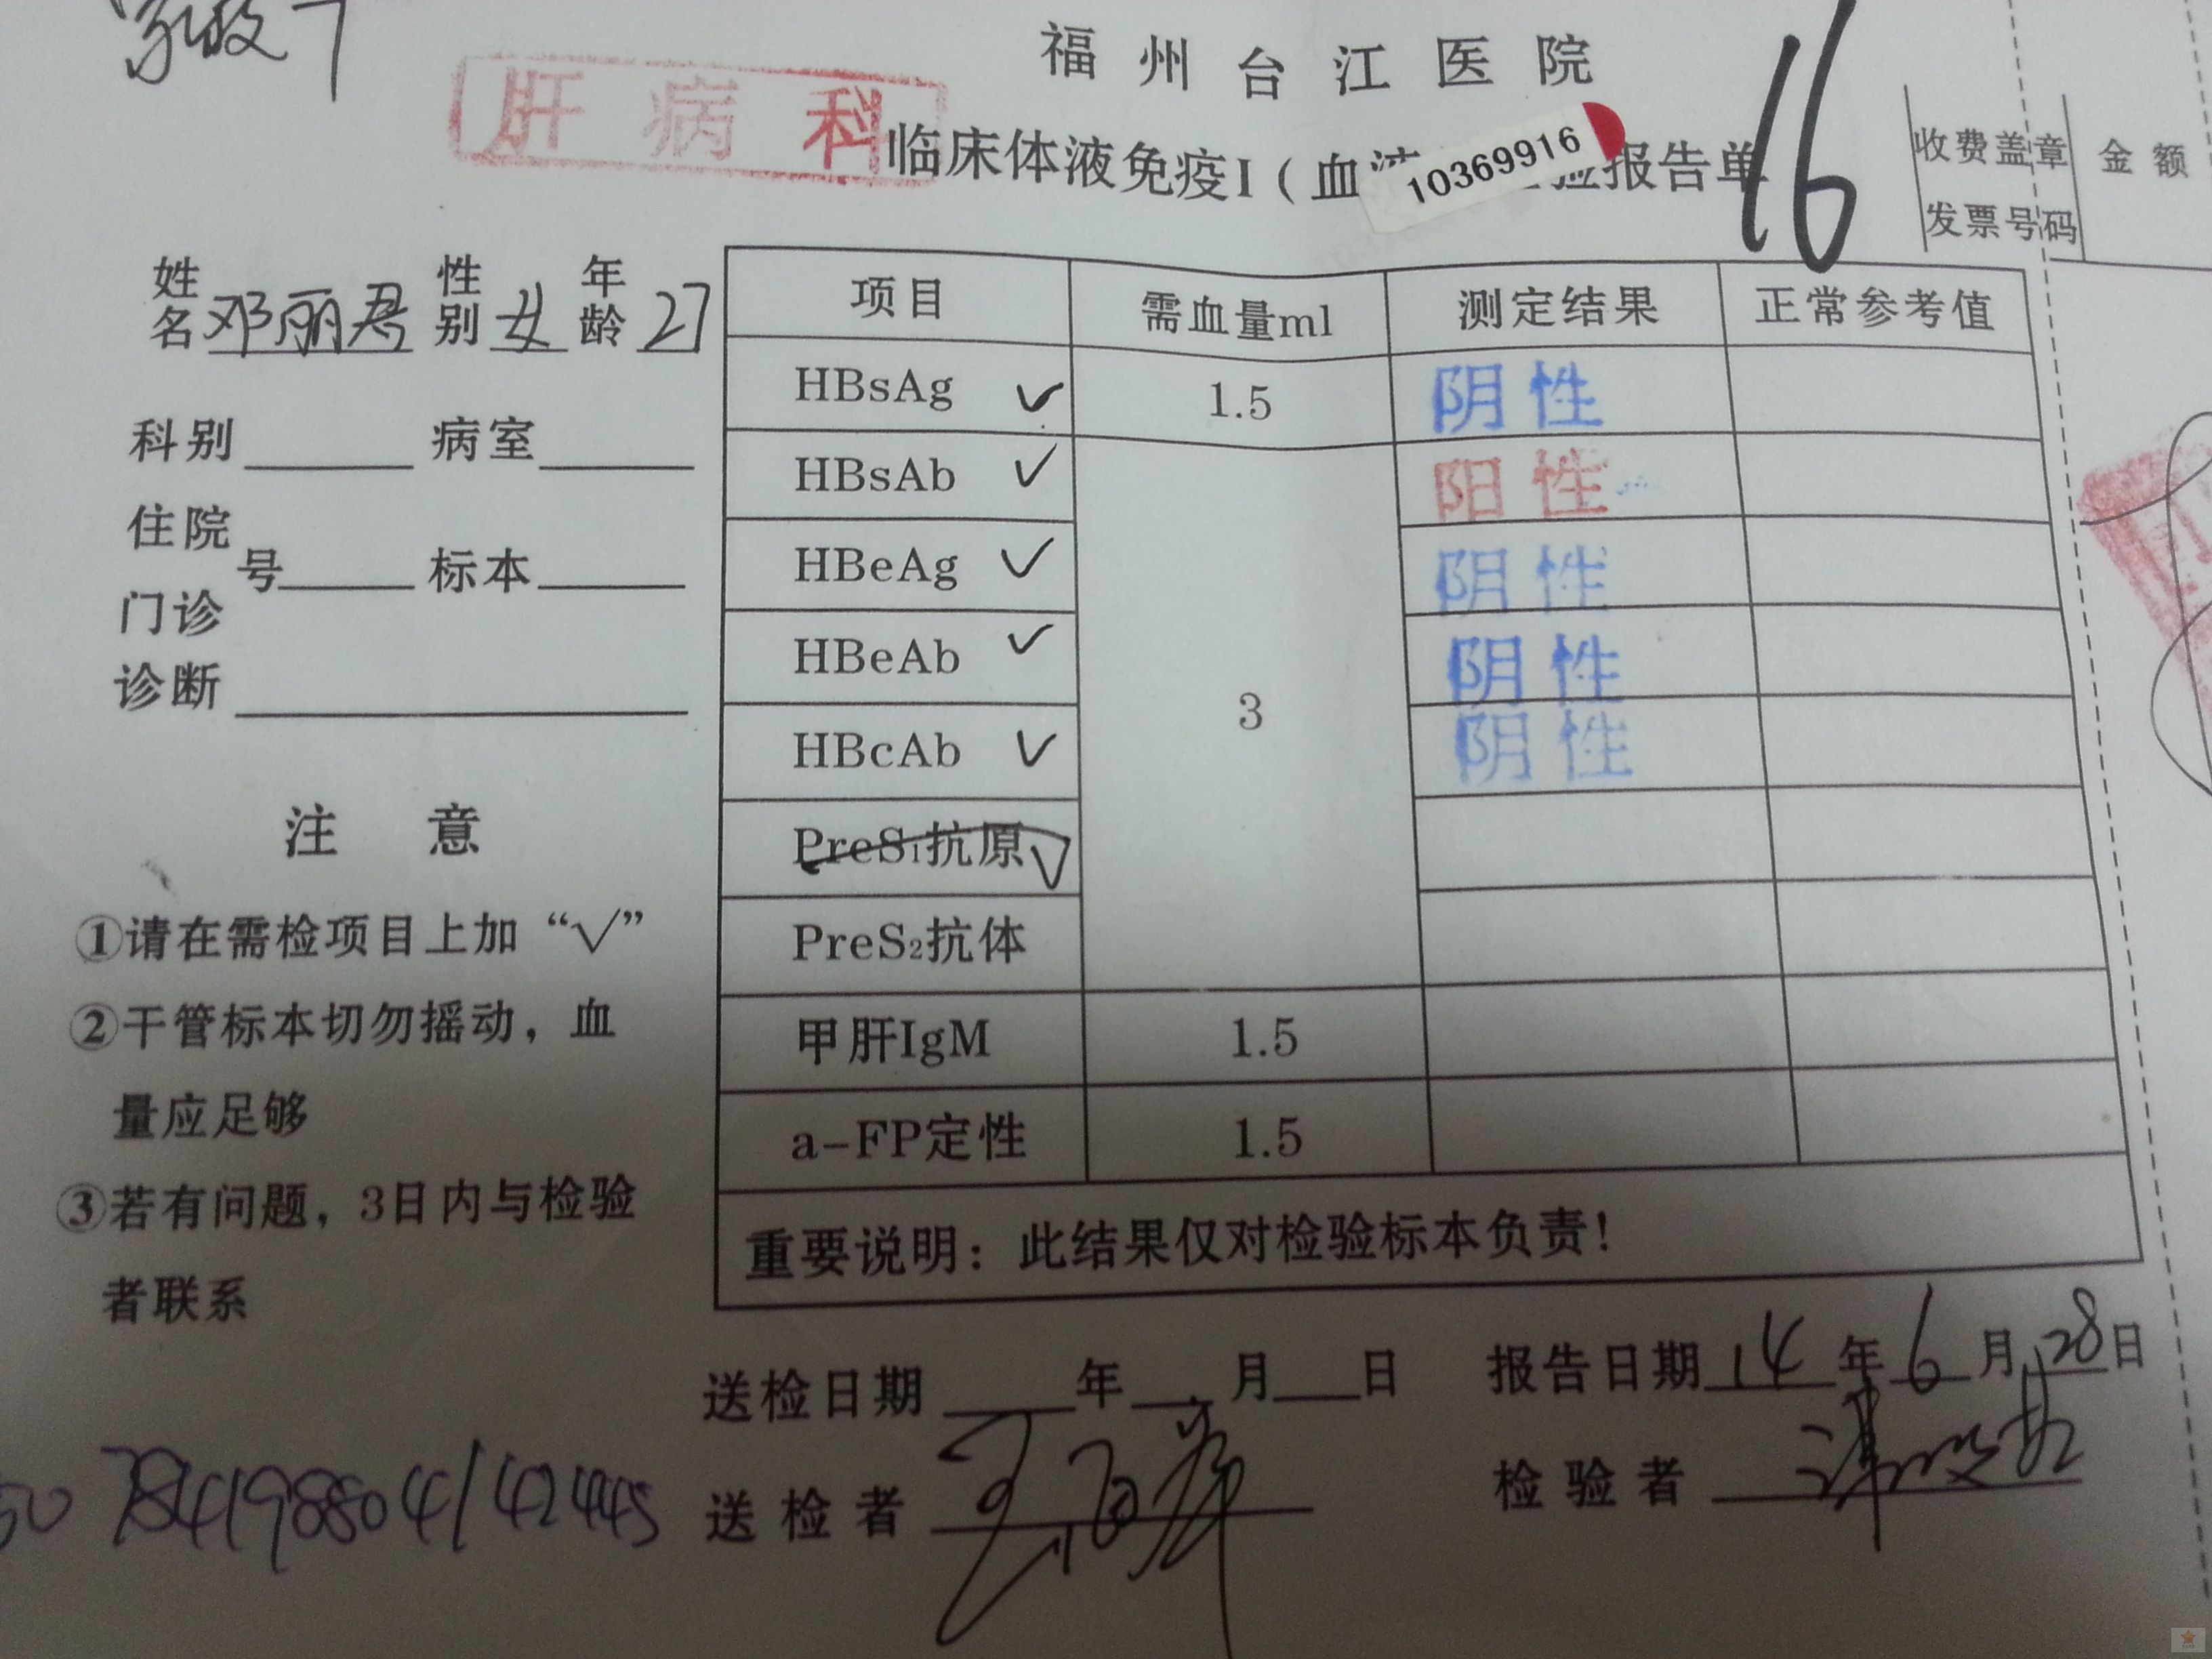 肝病科
福州台江医院
临床体液免疫I（血 验报告单
10369916
16
收费盖章 金额
发票号码
姓名 邓丽君 性别 女 年龄 27
科别 病室
住院
门诊 号 标本
诊断
注意
①请在需检项目上加“√”
②干管标本切勿摇动，血
量应足够
③若有问题，3日内与检验
者联系
项目 需血量ml 测定结果 正常参考值
HBsAg ✓ 1.5 阴性
HBsAb ✓ 阳性
HBeAg ✓ 阴性
HBeAb ✓ 3 阴性
HBcAb ✓ 阴性
PreS₁抗原 ✓
PreS₂抗体
甲肝IgM 1.5
a-FP定性 1.5
重要说明：此结果仅对检验标本负责！
送检日期 年 月 日 报告日期 14 年 6 月 28 日
送检者 检验者